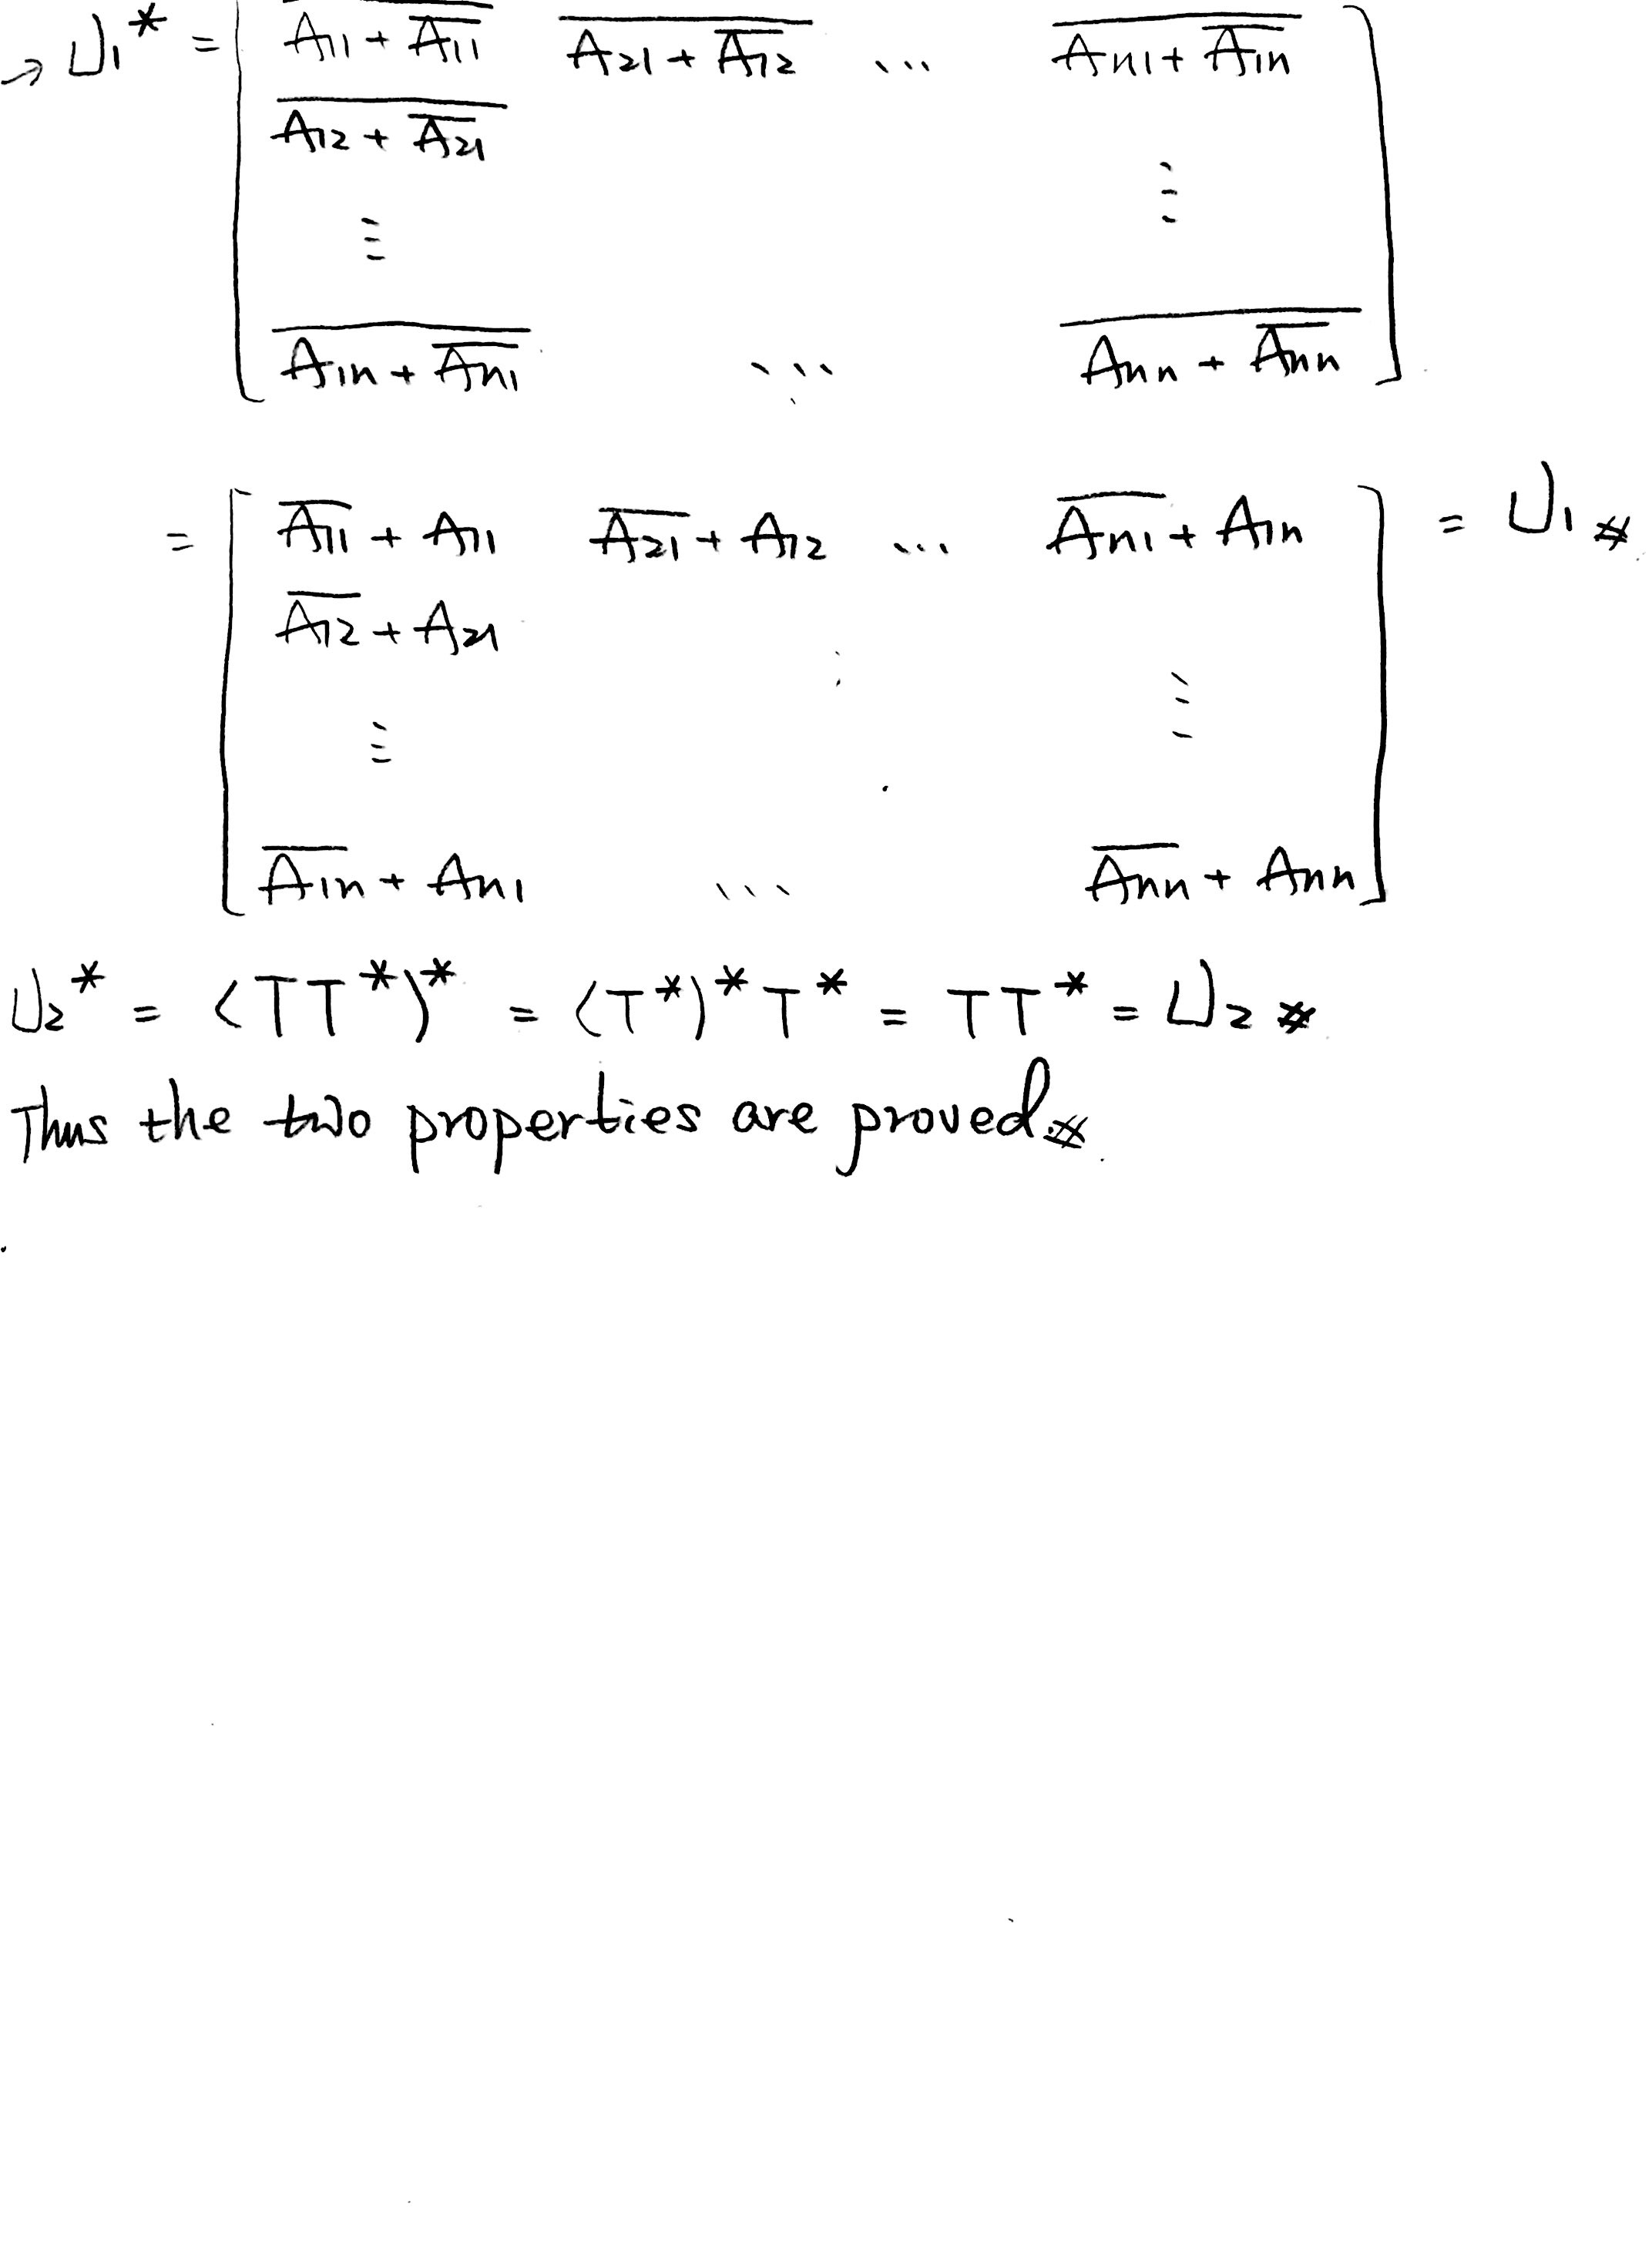 → U₁* = [ \overline{A₁₁ + \overline{A₁₁}} \overline{A₂₁ + \overline{A₁₂}} ... \overline{Aₙ₁ + \overline{A₁ₙ}}
\overline{A₁₂ + \overline{A₂₁}}
⋮ ⋮
\overline{A₁ₙ + \overline{Aₙ₁}} ... \overline{Aₙₙ + \overline{Aₙₙ}} ]
= [ \overline{A₁₁} + A₁₁ \overline{A₂₁} + A₁₂ ... \overline{Aₙ₁} + A₁ₙ ] = U₁ #
\overline{A₁₂} + A₂₁
⋮ ⋮
\overline{A₁ₙ} + Aₙ₁ ... \overline{Aₙₙ} + Aₙₙ
U₂* = (TT*)* = (T*)*T* = TT* = U₂ #
Thus the two properties are proved. #